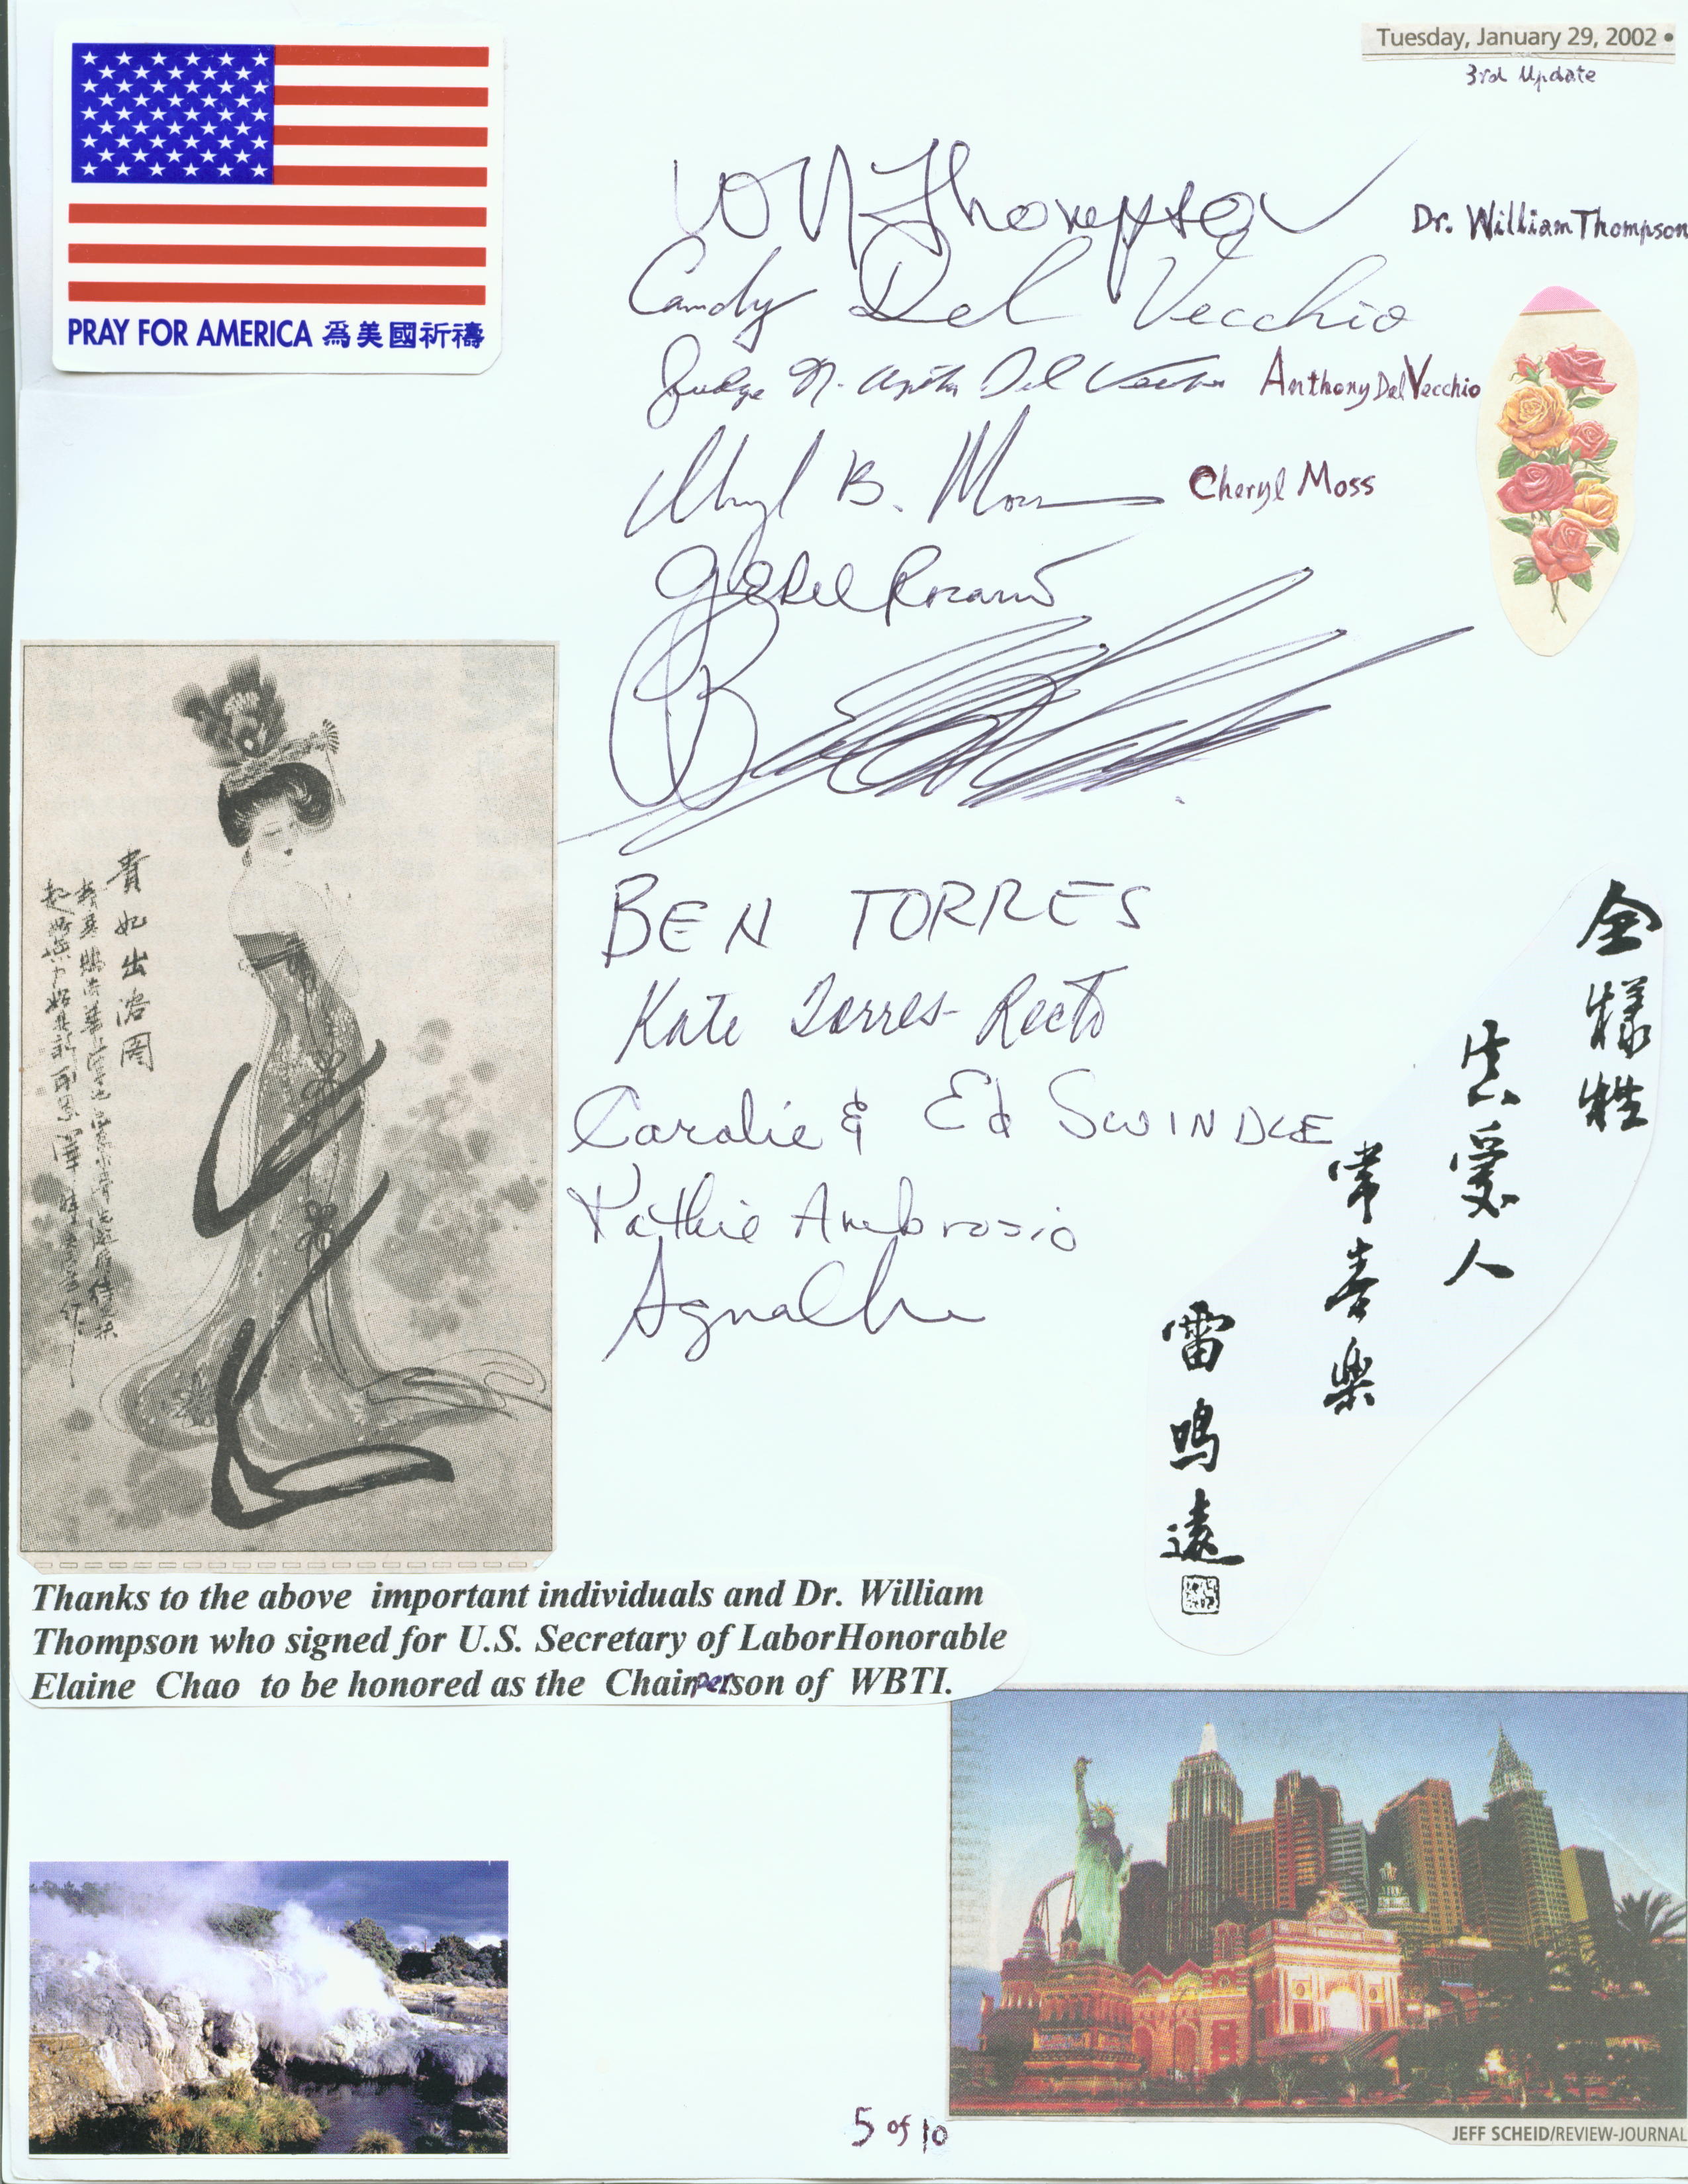 Tuesday, January 29, 2002 •
3rd Update
PRAY FOR AMERICA 爲美國祈禱
Thompson
Dr. William Thompson
Candy Del Vecchio
Judge Del Vecchio
Anthony Del Vecchio
Cheryl B. Moss
Cheryl Moss
BEN TORRES
Kate Torres-Recto
Carolie & Ed SWINDLE
Kathie Ambrosio
貴妃出浴圖
全犧牲
真愛人
常喜樂
雷鳴遠
Thanks to the above important individuals and Dr. William
Thompson who signed for U.S. Secretary of Labor Honorable
Elaine Chao to be honored as the Chairperson of WBTI.
5 of 10
JEFF SCHEID/REVIEW-JOURNAL